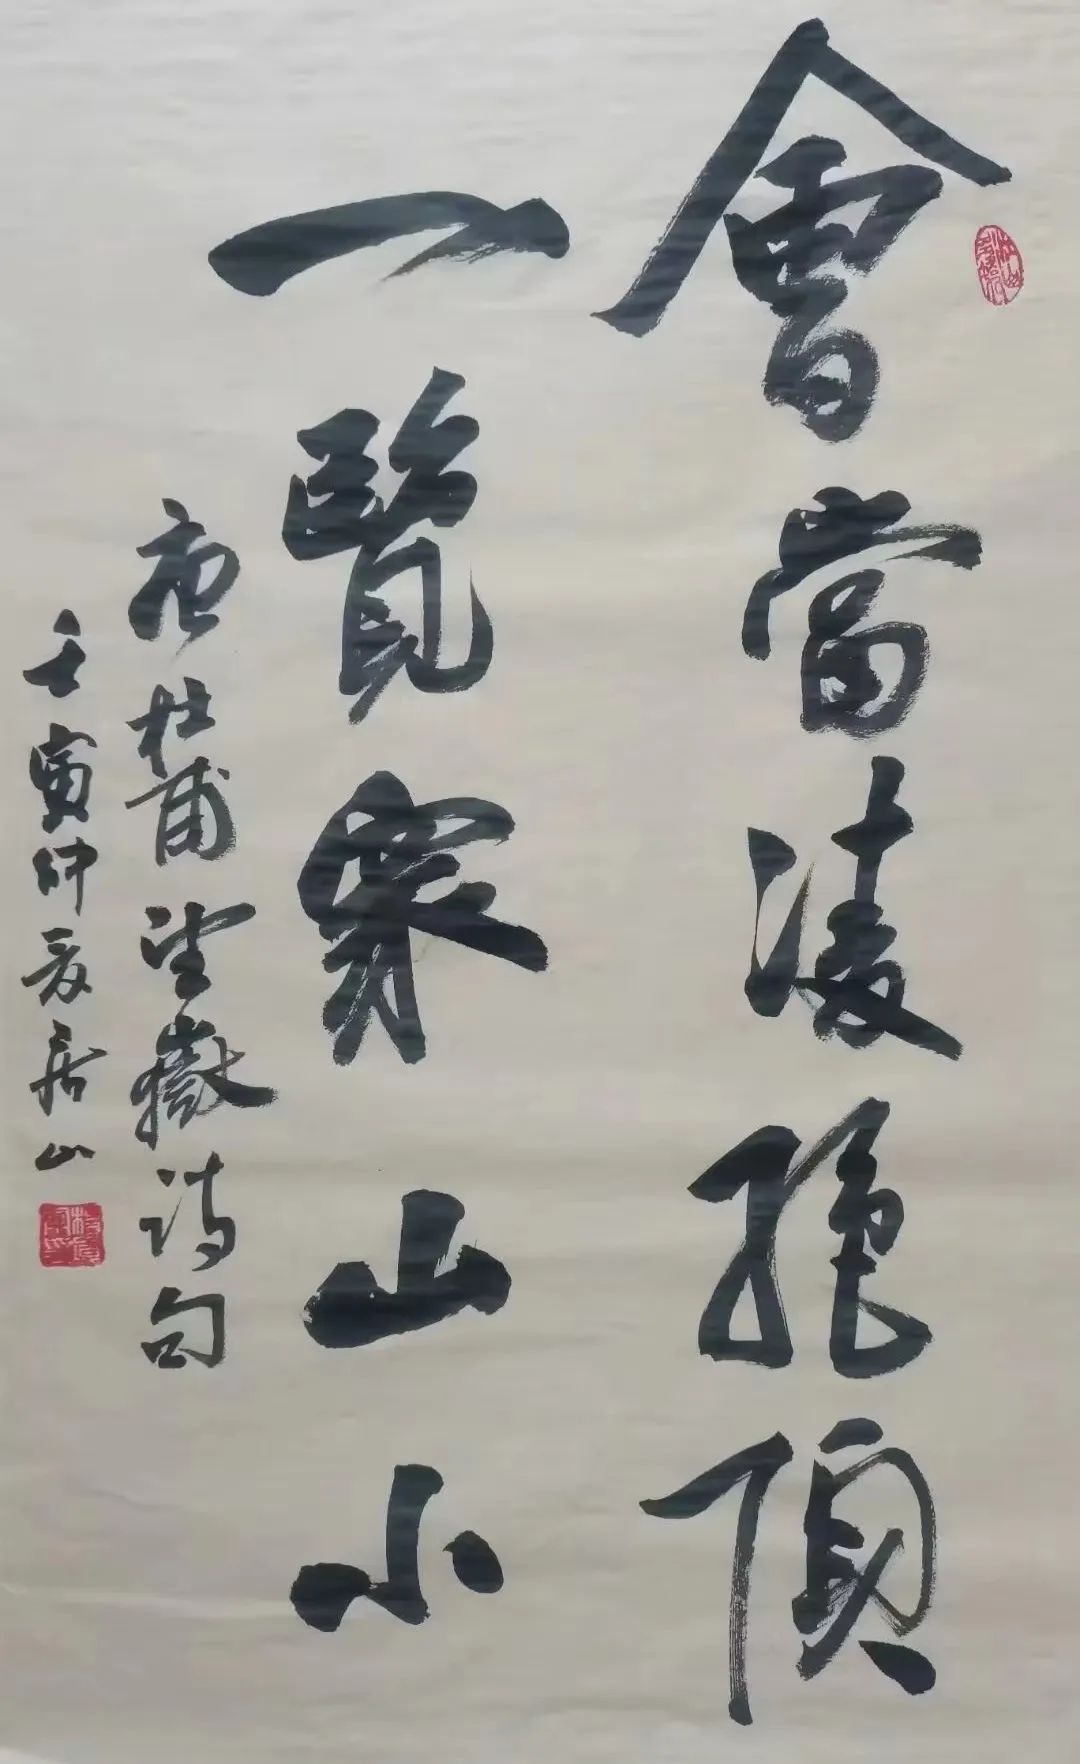 會當凌絕頂
一覽眾山小
唐杜甫望嶽詩句
壬寅仲夏岳山